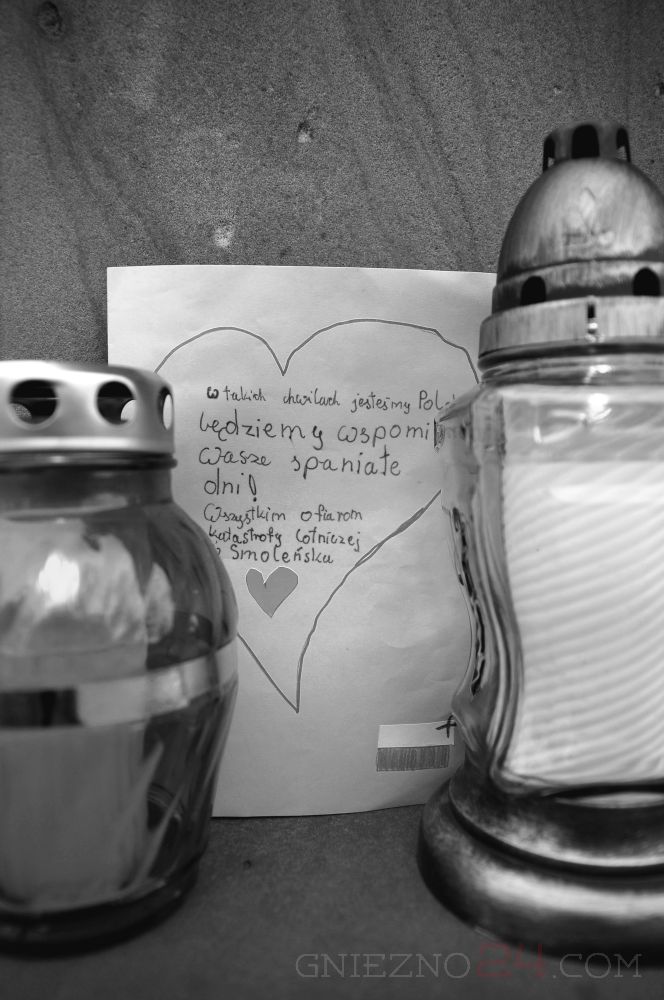 w takich chwilach jesteśmy Pol
będziemy wspomi
Wasze spaniałe
dni!
Wszystkim ofiarom
katastrofy lotniczej
Smoleńsku
GNIEZNO24.COM